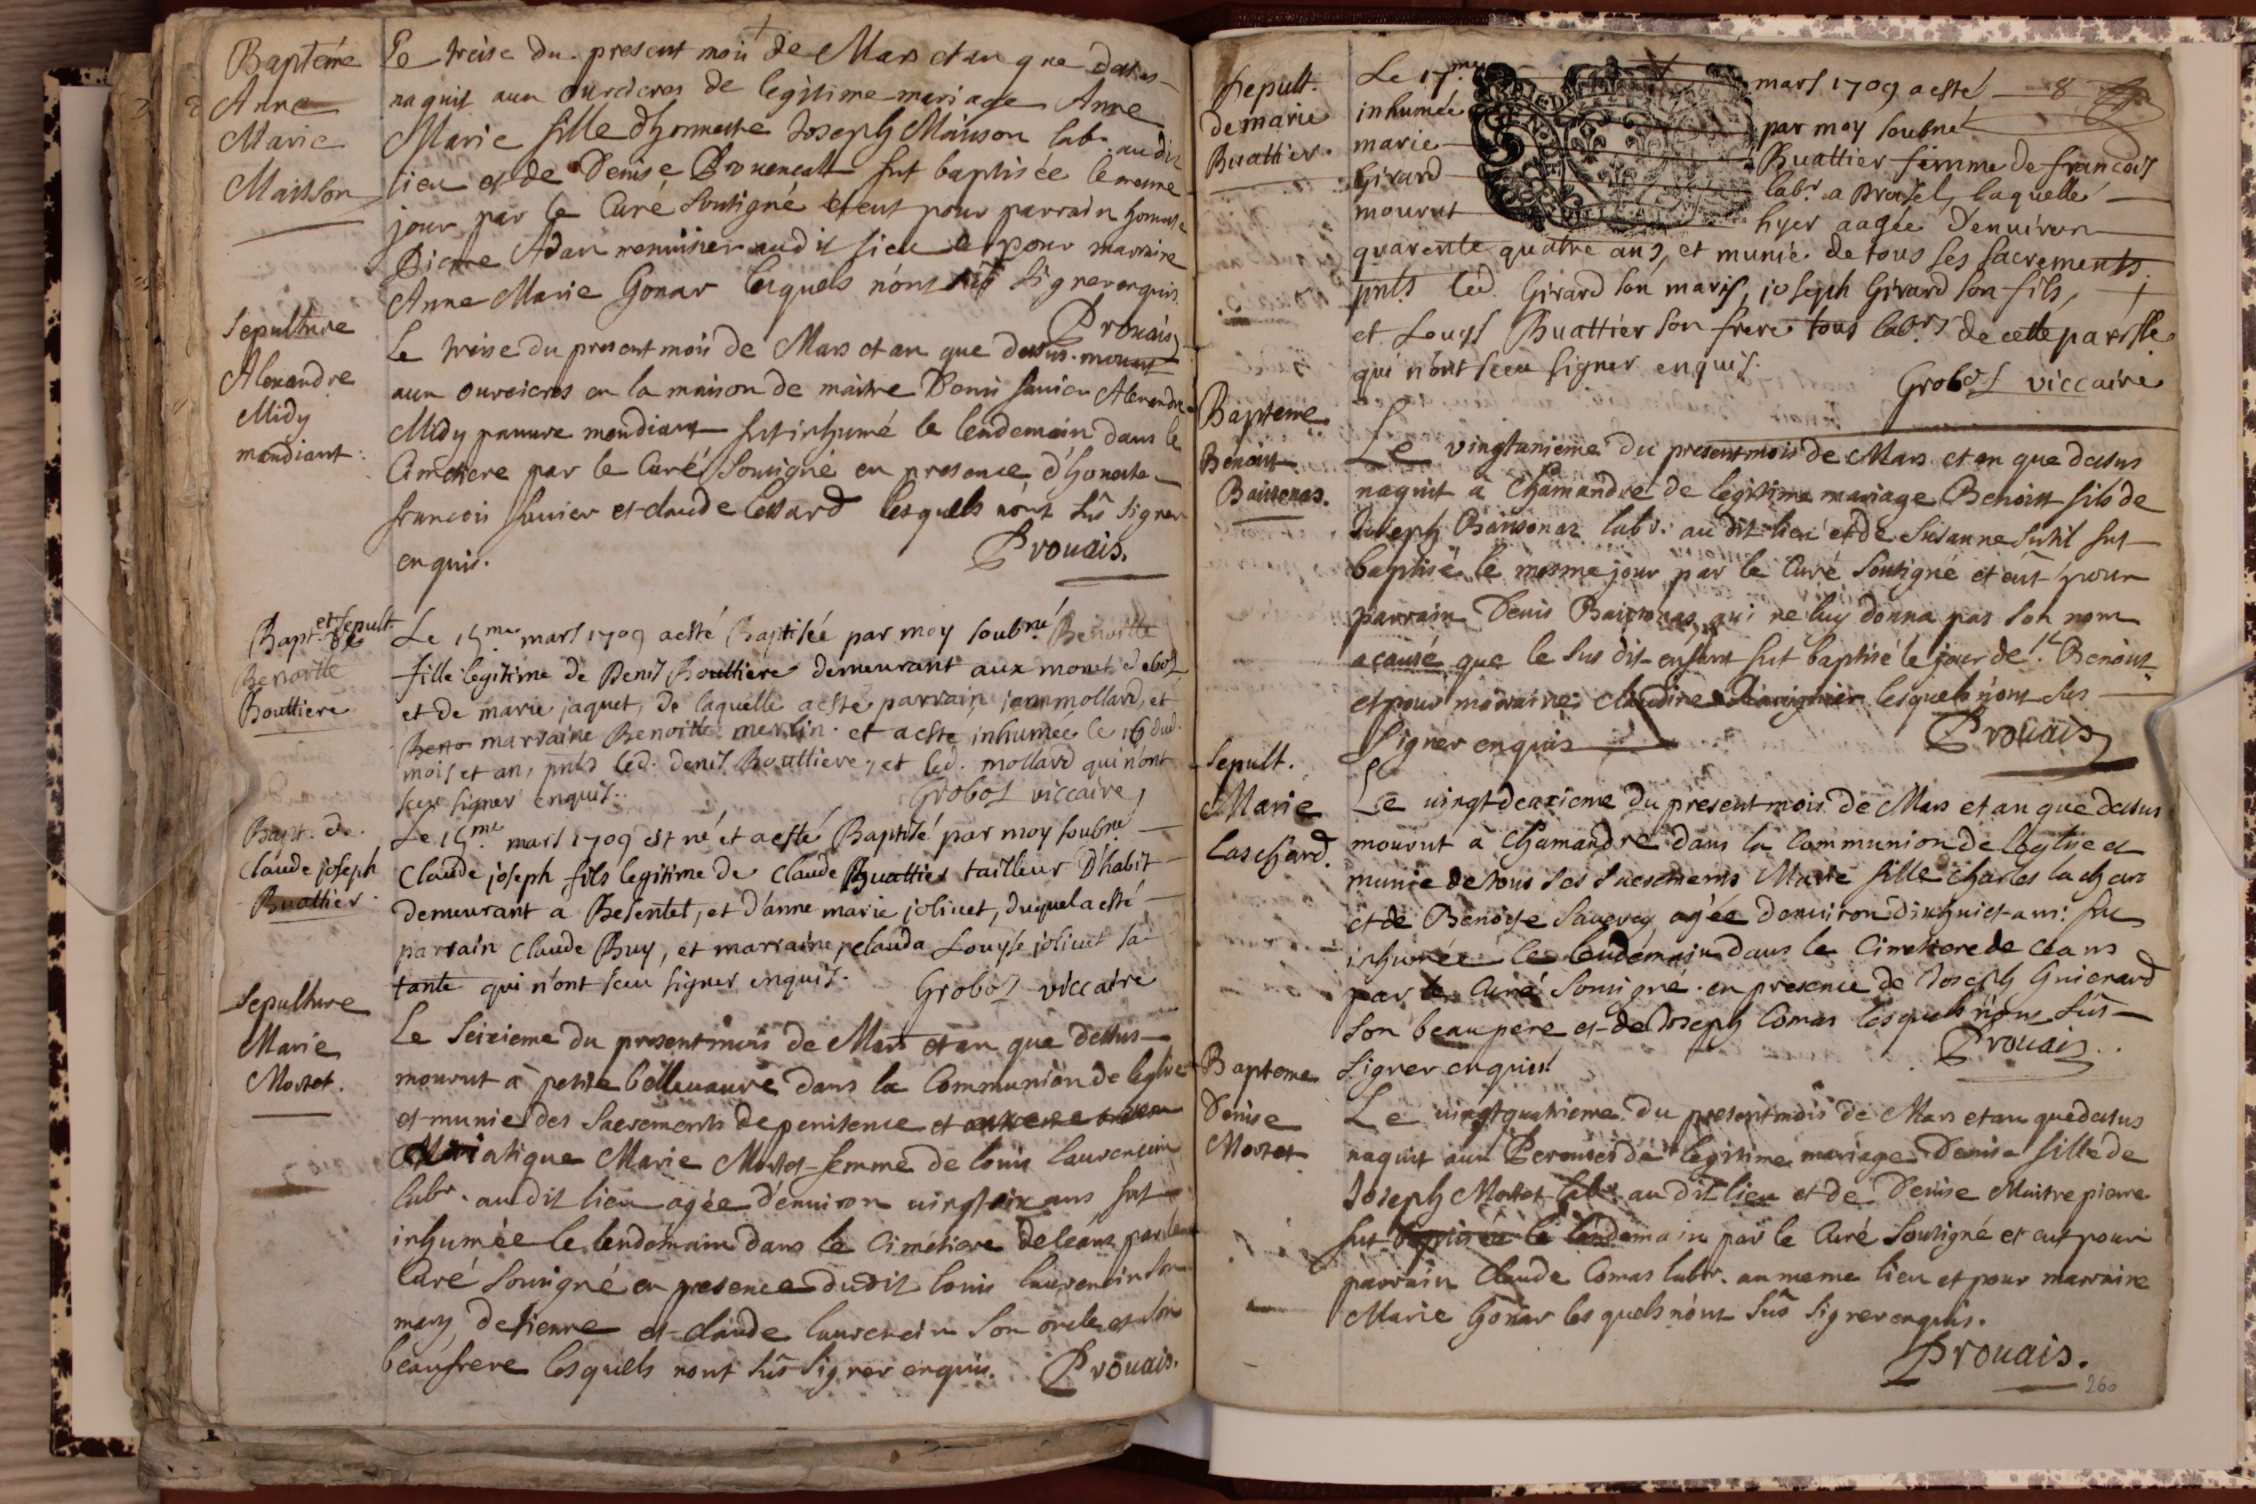 Bapteme
Anne
Marie
Maisson
Le treise du present mois de Mars et an que dessus
naquit aux ouroieres de legitime mariage Anne
Marie fille d'honneste Joseph Maisson labr. au dit
lieu et de Denise Prouencalt fut baptisée le mesme
jour par le Curé Soussigné et eut pour parrain honneste
Pierre Adan menuisier au dit lieu et pour marraine
Anne Marie Gonar lesquels n'ont sûs signer enquis.
Prouais
Sepulture
Alexandre
Midy
mandiant.
Le treise du present mois de Mars et an que dessus mourut
aux ouroieres en la maison de maitre Denis Alexandre
Midy pauure mandiant fut inhumé le lendemain dans le
Cimetiere par le Curé Sousigné en presence d'honeste
francois et claude lessard lesquels n'ont sûs signer
enquis.
Prouais.
Bapt. et sepult.
de
Benoitte
Bouttiere
Le 15.me mars 1709 a esté Baptisée par moy soubné Benoitte
fille legitime de Denis Bouttiere demeurant aux
et de marie jaquet, de laquelle a esté parrain jean mollard, et
Beno marraine Benoitte merlin. et a esté inhumée le 16 dud.
mois et an, pnts led. denis Bouttiere, et led. mollard qui n'ont
sceu signer enquis.
Grobos viccaire
Bapt. de
Claude joseph
Buattier.
Le 15.me mars 1709 est né et a esté Baptisé par moy soubné
Claude joseph fils legitime de Claude Buattier tailleur d'habit
demeurant a Besentet, et d'anne marie joliuet, duquel a esté
parrain Claude Buy, et marraine pelauda Louyse joliuet sa
tante qui n'ont sceu signer enquis.
Grobos viccaire
Sepulture
Marie
Mortet.
Le Seizieme du present mois de Mars et an que dessus
mourut à petite belleuaure dans la Communion de leglise
et munie des Sacrements de penitence et
Marie Mortet femme de louis laurencin
labr. au dit lieu agée d'enuiron uingt six ans fut
inhumée le lendemain dans le Cimetiere de ceans par le
Curé Sousigné en presence dudit louis laurencin son
mary et claude laurencin son oncle et son
beaufrere lesquels nont sûs signer enquis.
Prouais.
Sepult.
de marie
Buattier.
Le 17.me mars 1709 a esté 8
inhumée par moy soubné
marie Buattier femme de francois
Girard labr. a Broisel, laquelle
mourut hyer aagée d'enuiron
quarente quatre ans, et munie de tous ses sacrements,
pnts led. Girard son maris, joseph Girard son fils,
et Louys Buattier son frere tous labrs de cette parisse
qui n'ont sceu signer enquis.
Grobos viccaire
Bapteme
Benoist
Baissonas.
Le vingtunieme du present mois de Mars et an que dessus
naquit à Chamandre de legitime mariage Benoist fils de
Joseph Baissonas labr. au dit lieu et de Susanne Sutil fut
baptisé le mesme jour par le Curé Sousigné et eût pour
parrain Denis Baissonas qui ne luy donna pas son nom
a cause que le sus dit enfant fut baptisé le jour de St. Benoist
et pour marraine claudine lesquels n'ont sus
signer enquis
Prouais
Sepult.
Marie
Laschard.
Le uingtdeuxieme du present mois de Mars et an que dessus
mourut à Chamandre dans la Communion de leglise et
munie de tous ses Sacrements Marie fille Charles lachard
et de Benoite agée d'enuiron dixhuict ans: fut
inhumée le lendemain dans le Cimetiere de ceans
par le Curé Sousigné en presence de Joseph Guierard
son beau pere et de Joseph Comas lesquels n'ont sûs
signer enquis.
Prouais
Bapteme
Denise
Mortet
Le uingtquatrieme du present mois de Mars et an que dessus
naquit aux Perouses de legitime mariage Denise fille de
Joseph Mortet labr au dit lieu et de Denise Maitrepierre
fut baptisée le lendemain par le Curé Sousigné et eut pour
parrain Claude Comas labr. au meme lieu et pour marraine
Marie Gonar lesquels n'ont sûs signer enquis.
Prouais.
260